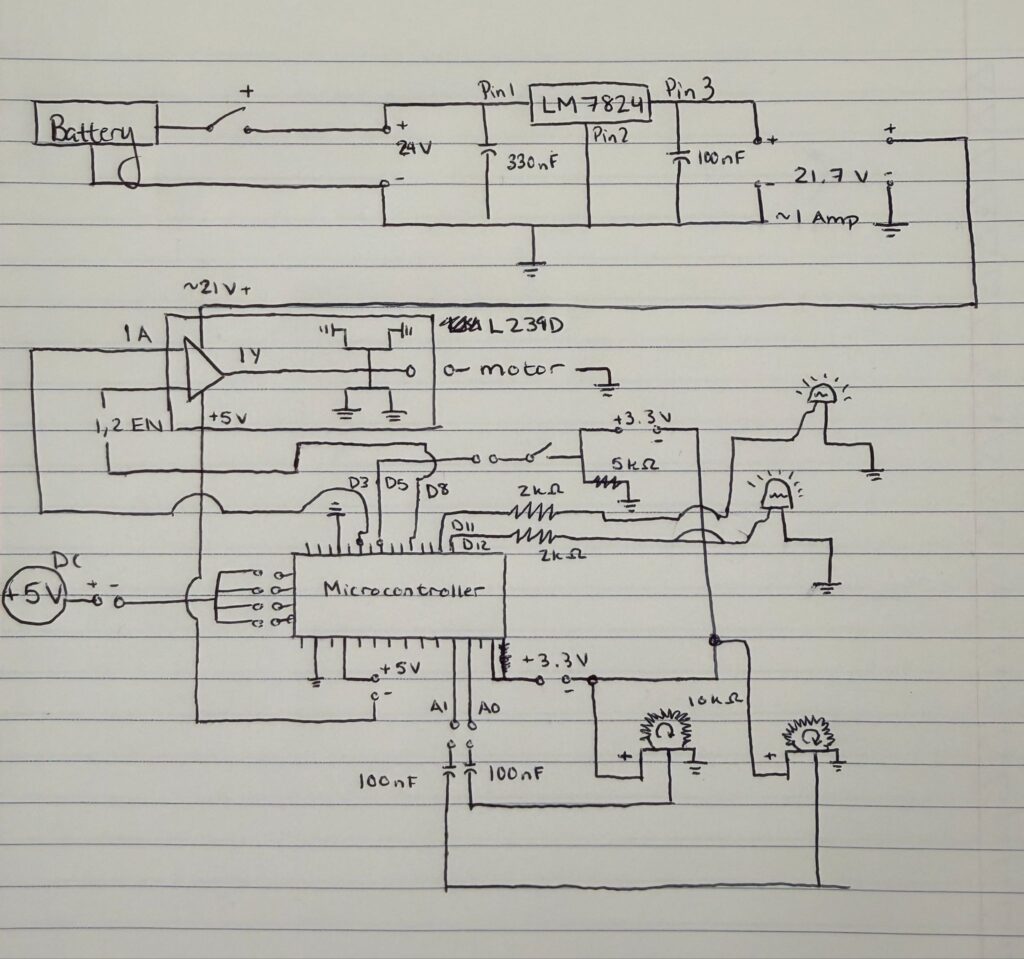 Battery
+
+
24V
-
Pin1
LM7824
Pin2
Pin 3
330nF
100nF
+
-
21.7 V
~1 Amp
+
-
~21V+
1A
1Y
L239D
motor
1,2 EN
+5V
+3.3V
-
5kΩ
D3
D5
D8
2kΩ
D11
D12
2kΩ
DC
+5V
+ -
Microcontroller
+5V
-
+3.3V
-
A1
A0
10kΩ
+
+
100nF
100nF